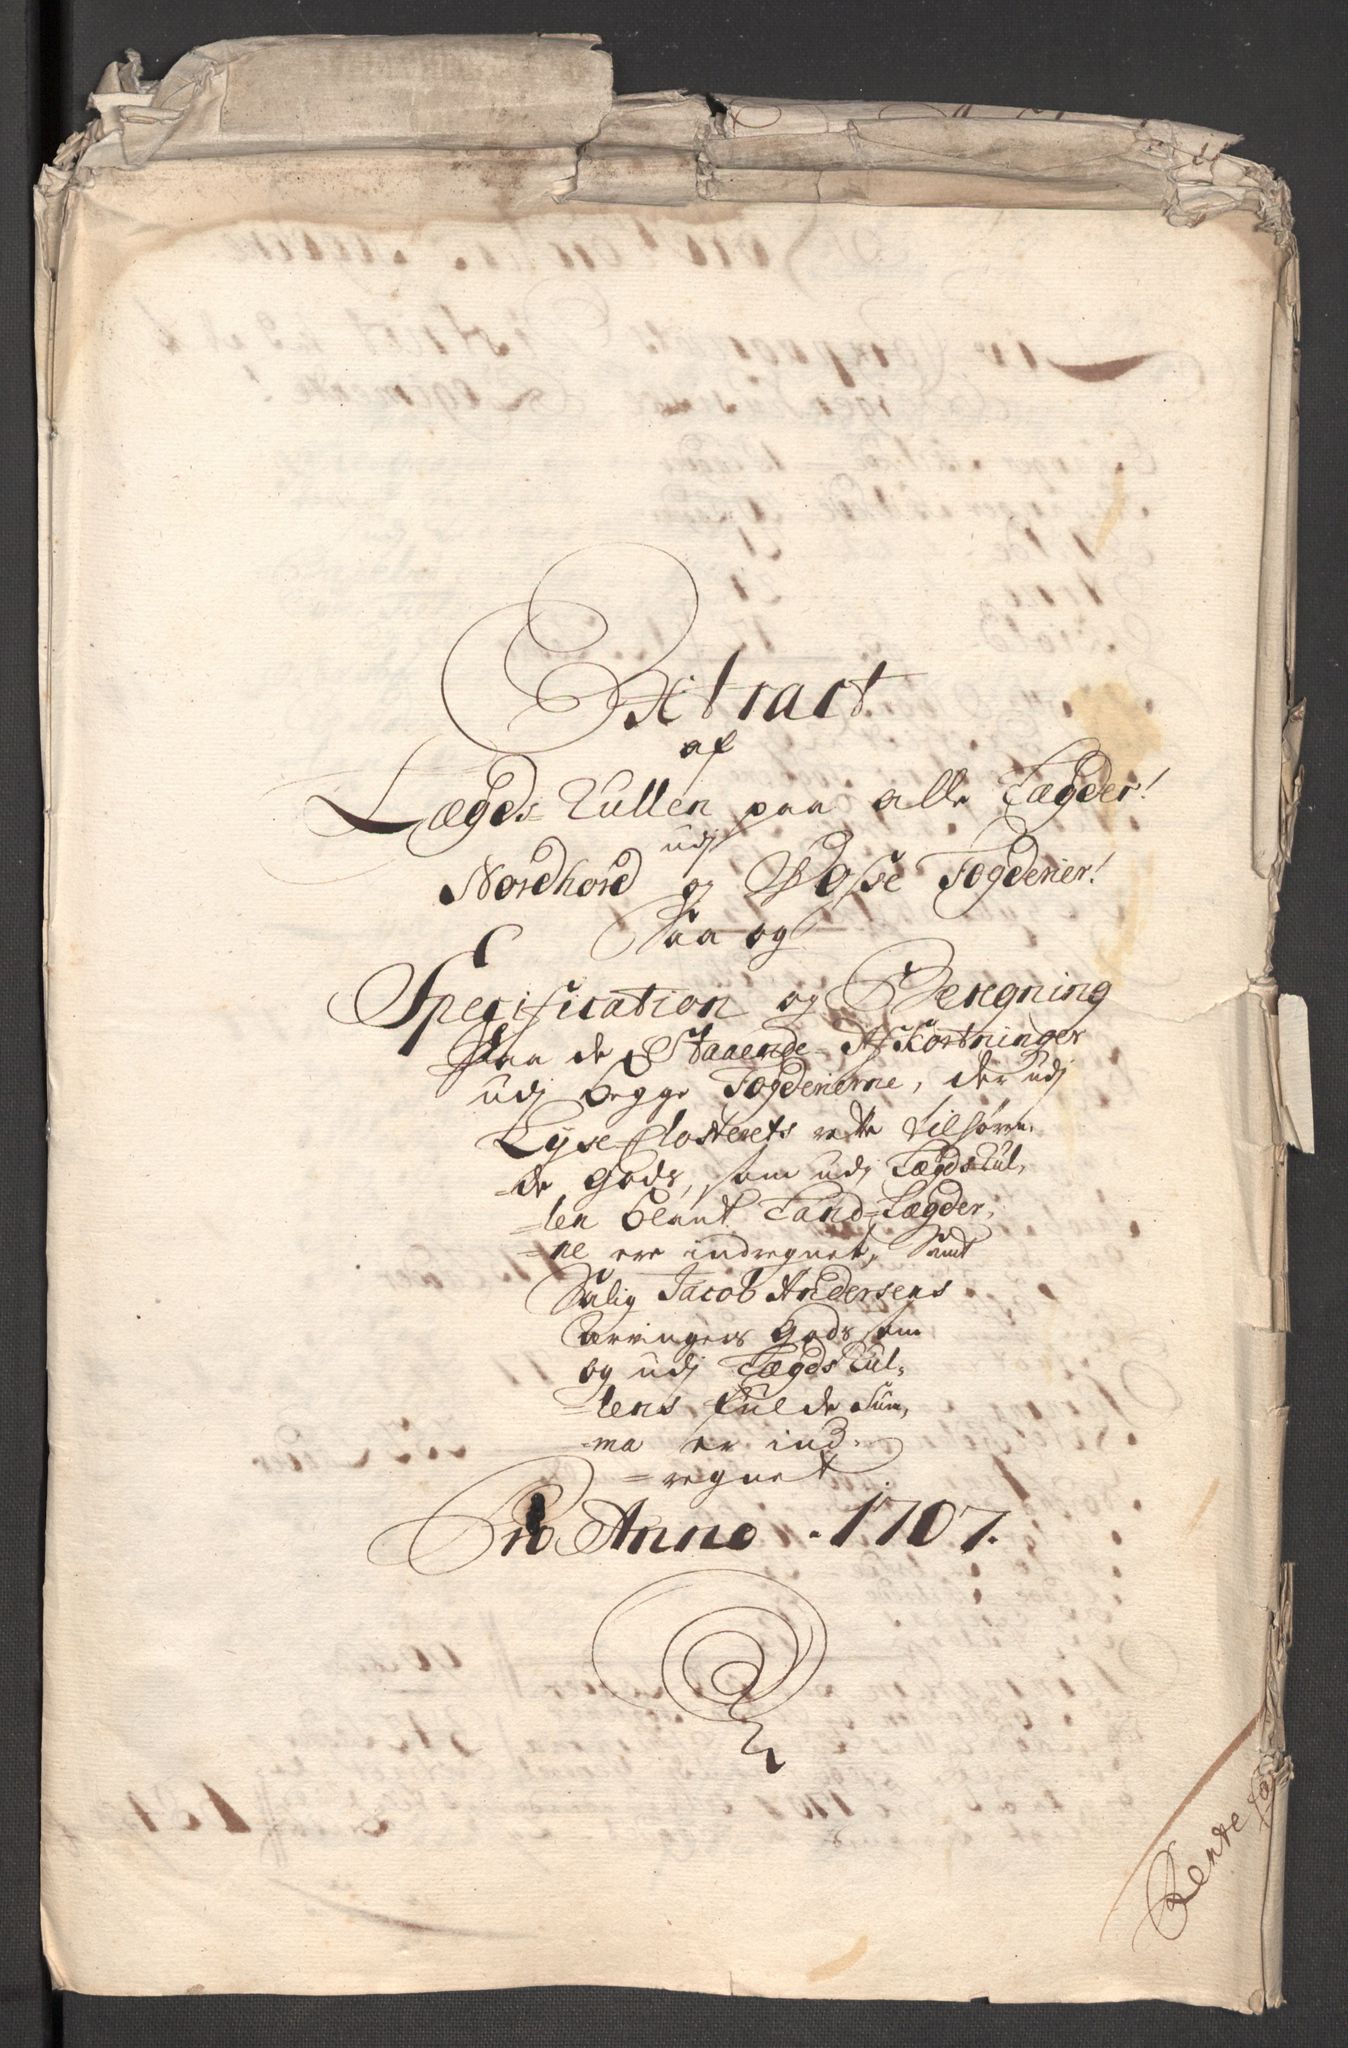 Extract
af
Lægds-Rullen paa alle Lægder!
udj
Nordhord og Wosse Fogderier!
Saa og
Specification og Beregning
Paa de Staaende Afkortninger
udj begge Fogderierne, der udj
Lyse-Closterets rette tilhøren-
-de Gods, som udj LægdsRul-
-len blant Land-Lægder-
-ne ere indregnet, Samt
Salig Jacob Andersens
Arvingers Gods som
og udj LægdsRul-
-lens fulde Sum-
-ma er ind-
-regnet
Pro Anno 1707.
Rente